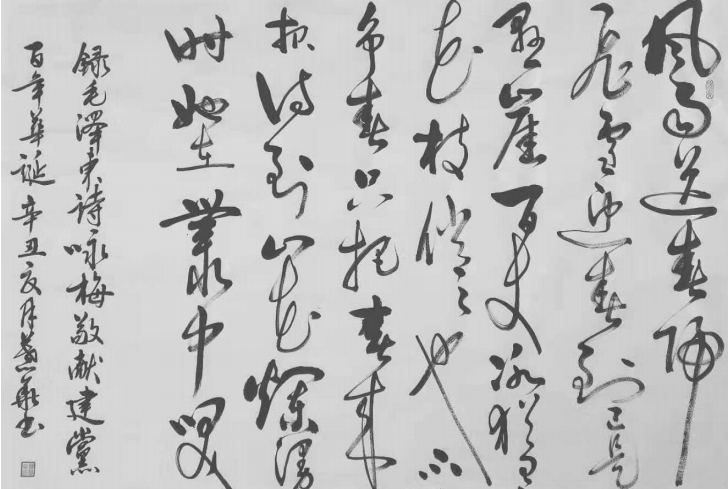 風雨送春歸
飛雪迎春到已是
懸崖百丈冰猶有
花枝俏々也不
争春只把春来
报待到山花爛漫
时她在叢中唉
録毛澤東詩咏梅敬献建黨
百年華誕辛丑夏月書